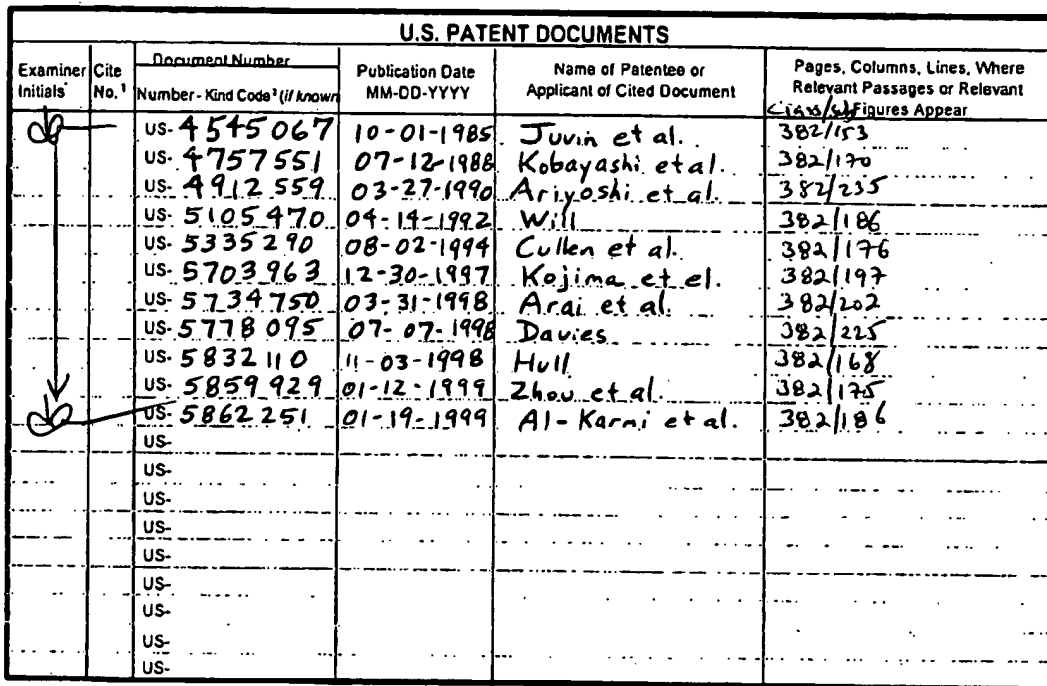 U.S. PATENT DOCUMENTS
Examiner Initials* Cite No.¹ Document Number Number - Kind Code² (if known Publication Date MM-DD-YYYY Name of Patentee or Applicant of Cited Document Pages, Columns, Lines, Where Relevant Passages or Relevant Figures Appear
US- 4545067 10-01-1985 Juvin et al. 382/153
US- 4757551 07-12-1988 Kobayashi et al. 382/170
US- 4912559 03-27-1990 Ariyoshi et al. 382/235
US- 5105470 04-14-1992 Will 382/186
US- 5335290 08-02-1994 Cullen et al. 382/176
US- 5703963 12-30-1997 Kojima et el. 382/197
US- 5734750 03-31-1998 Arai et al. 382/202
US- 5778095 07-07-1998 Davies 382/225
US- 5832110 11-03-1998 Hull 382/168
US- 5859929 01-12-1999 Zhou et al. 382/175
US- 5862251 01-19-1999 Al-Karmi et al. 382/186
US-
US-
US-
US-
US-
US-
US-
US-
US-